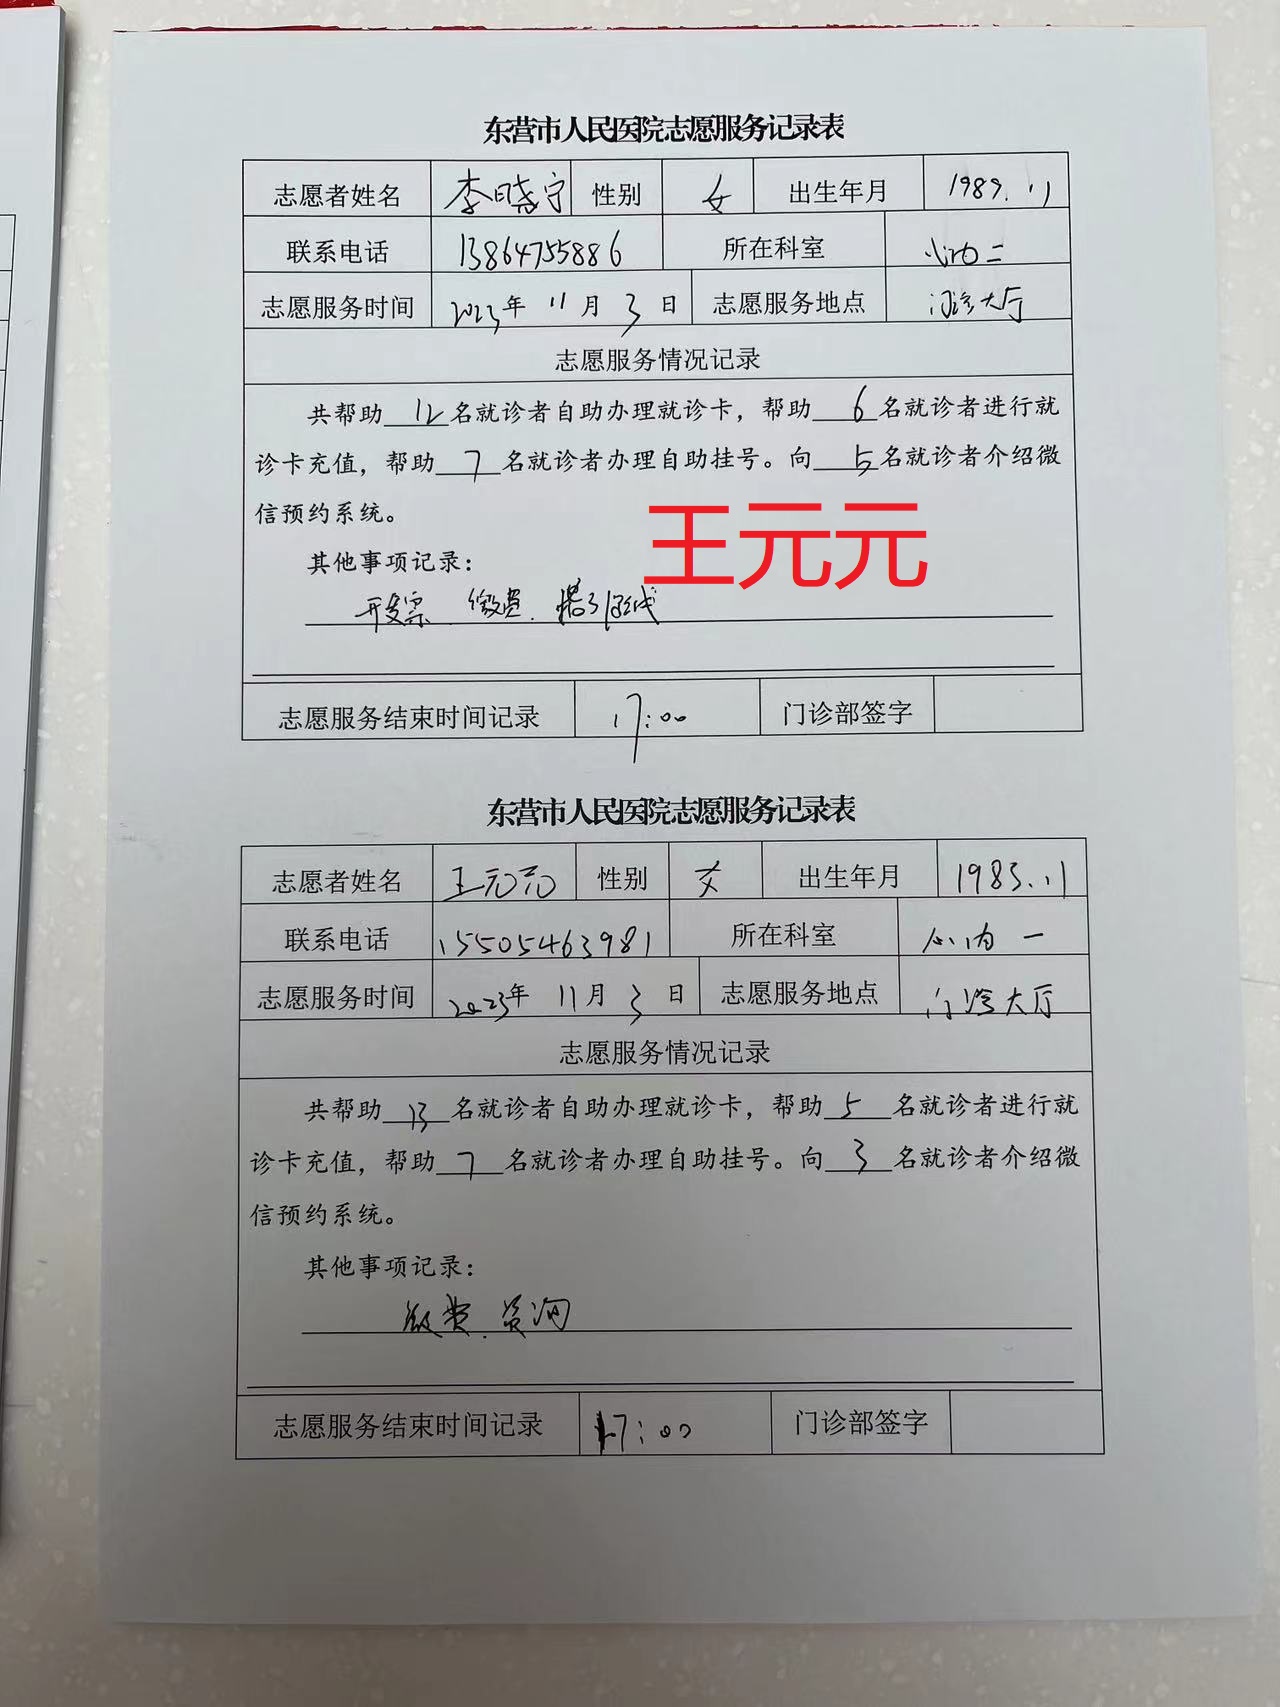 东营市人民医院志愿服务记录表
志愿者姓名 李晓守 性别 女 出生年月 1989.11
联系电话 13864755886 所在科室 心内二
志愿服务时间 2023年 11月 3日 志愿服务地点 门诊大厅
志愿服务情况记录
共帮助12名就诊者自助办理就诊卡，帮助6名就诊者进行就
诊卡充值，帮助7名就诊者办理自助挂号。向5名就诊者介绍微
信预约系统。
王元元
其他事项记录：
开发票、缴费、
志愿服务结束时间记录 17:00 门诊部签字
东营市人民医院志愿服务记录表
志愿者姓名 王元元 性别 女 出生年月 1985.11
联系电话 15505463981 所在科室 心内一
志愿服务时间 2023年 11月 3日 志愿服务地点 门诊大厅
志愿服务情况记录
共帮助13名就诊者自助办理就诊卡，帮助5名就诊者进行就
诊卡充值，帮助7名就诊者办理自助挂号。向3名就诊者介绍微
信预约系统。
其他事项记录：
缴费、咨询
志愿服务结束时间记录 17:00 门诊部签字